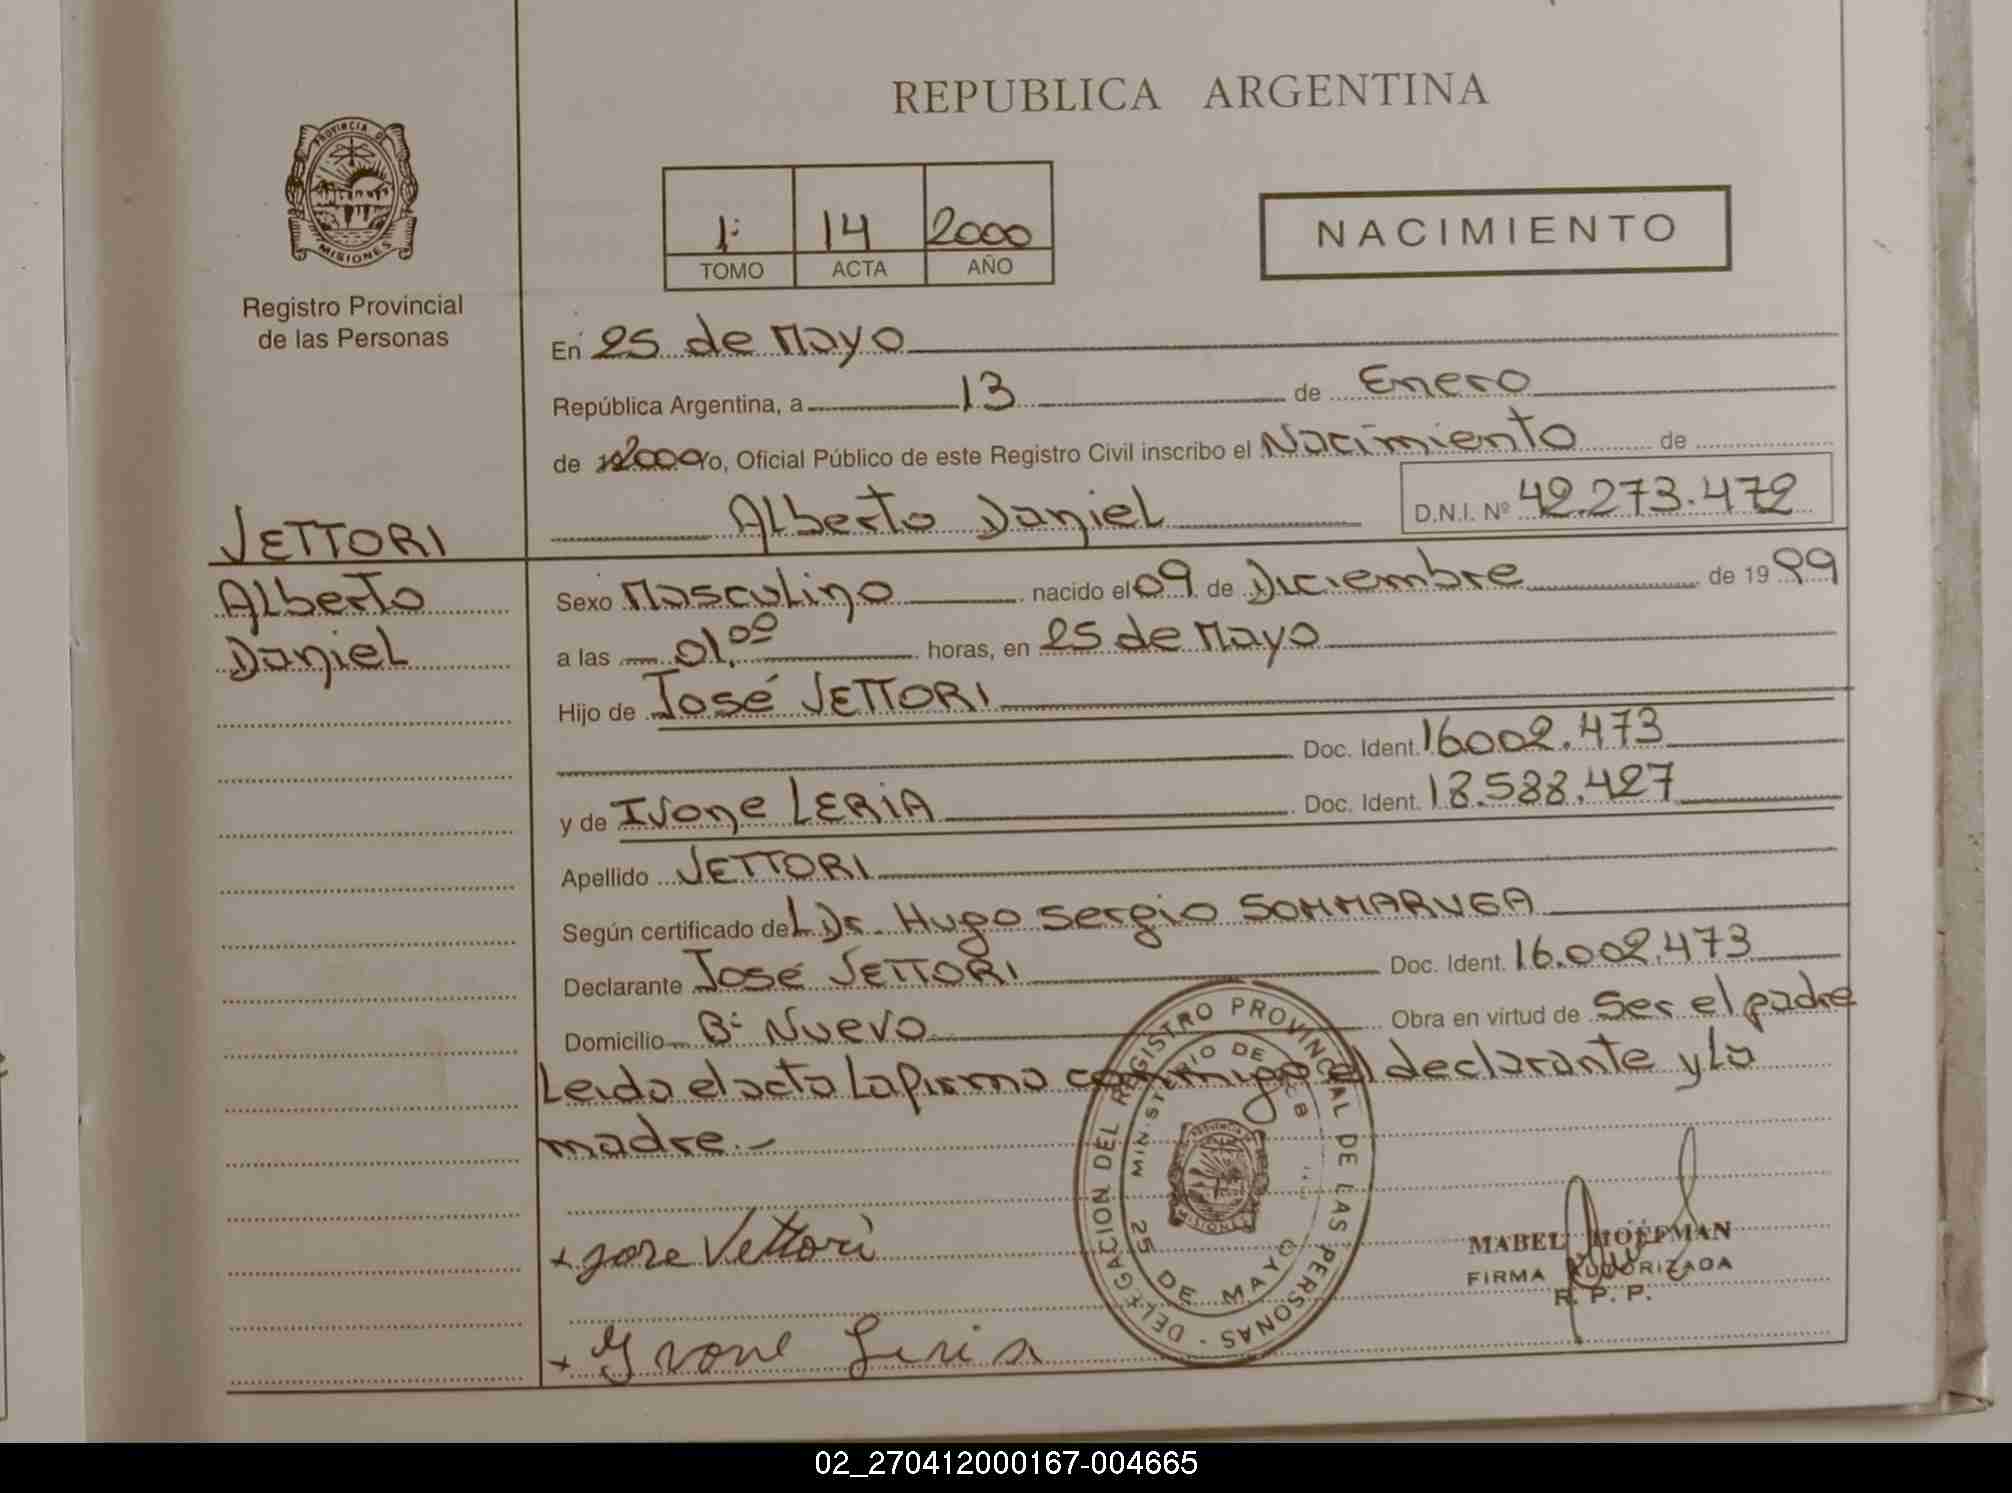 REPUBLICA ARGENTINA
PROVINCIA DE MISIONES
Registro Provincial
de las Personas
1º 14 2000
TOMO ACTA AÑO
NACIMIENTO
En 25 de Mayo
República Argentina, a 13 de Enero
de 2000 Yo, Oficial Público de este Registro Civil inscribo el Nacimiento de
Alberto Daniel D.N.I. Nº 42.273.472
VETTORI
Alberto
Daniel
Sexo Masculino nacido el 09 de Diciembre de 19 99
a las 01,00 horas, en 25 de Mayo
Hijo de José VETTORI
Doc. Ident. 16.002.473
y de Ivone LERIA Doc. Ident. 18.588.427
Apellido VETTORI
Según certificado del Dr. Hugo Sergio SOMMARUGA
Declarante José VETTORI Doc. Ident. 16.002.473
Domicilio Bº Nuevo Obra en virtud de Ser el padre
Leida el acta La firma conmigo el declarante y La
madre.-
DELEGACION DEL REGISTRO PROVINCIAL DE LAS PERSONAS -
25 DE MAYO
x Jose Vettori
x Yvone Leria
MABEL HOFFMAN
FIRMA AUTORIZADA
R. P. P.
02_270412000167-004665